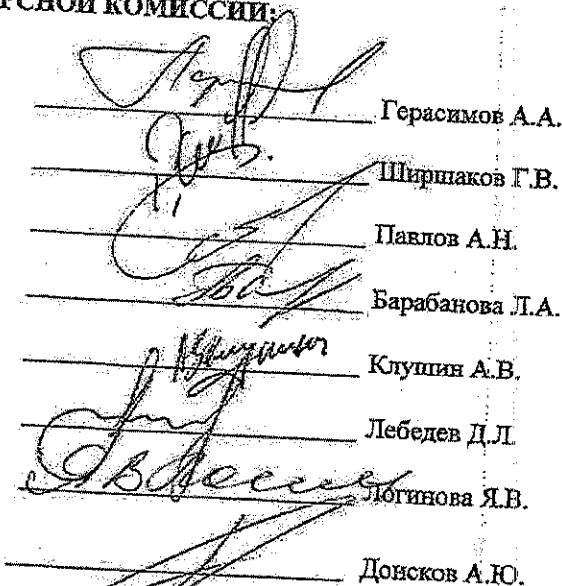 РСНОЙ КОМИССИИ:
Герасимов А.А.
Ширшаков Г.В.
Павлов А.Н.
Барабанова Л.А.
Клушин А.В.
Лебедев Д.Л.
Логинова Я.В.
Донсков А.Ю.